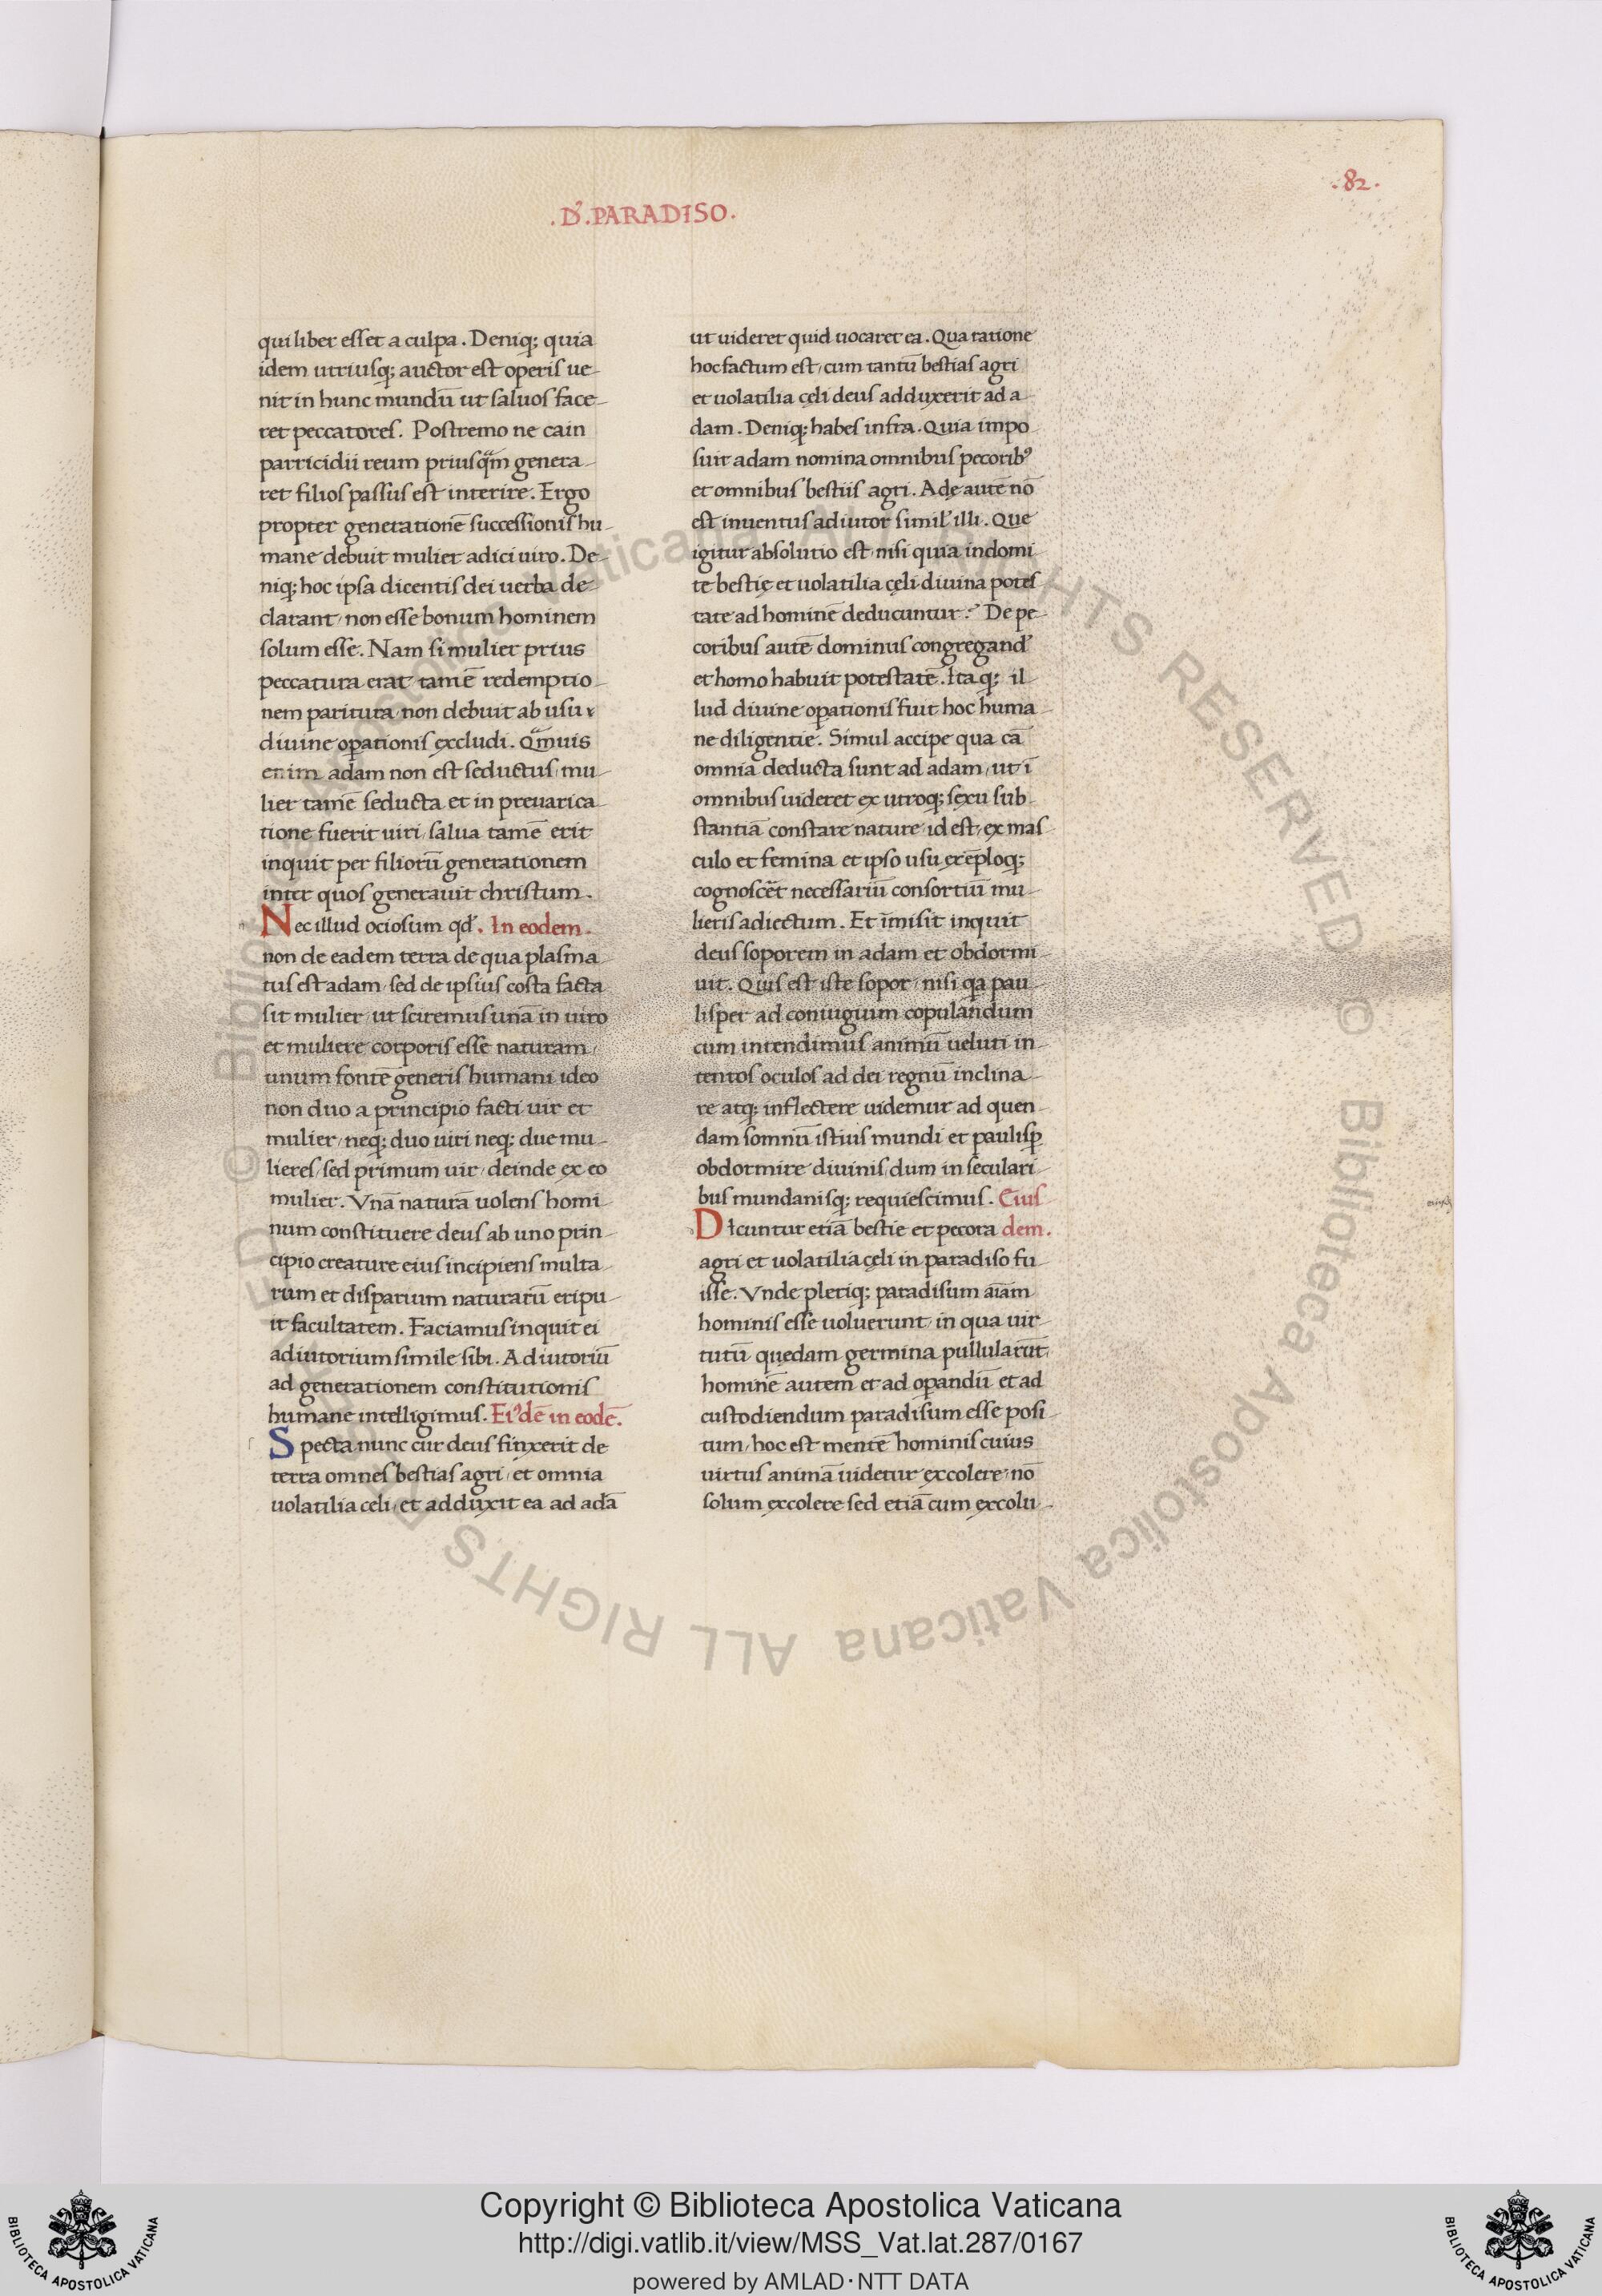 .82.
.D̕.PARADISO.
qui liber esset a culpa. Deniq; quia
idem utriusq; auctor est operis ue-
nit in hunc mundū ut saluos face-
ret peccatores. Postremo ne cain
parricidii reum priusq̃m genera-
ret filios passus est interire. Ergo
propter generationē successionis hu-
mane debuit mulier adici uiro. De-
niq; hoc ipsa dicentis dei uerba de-
clarant, non esse bonum hominem
solum esse. Nam si mulier prius
peccatura erat tamē redemptio-
nem paritura, non debuit ab usu
diuine oꝑationis excludi. Q̃muis
enim adam non est seductus, mu-
lier tamē seducta et in preuarica-
tione fuerit uiri, salua tamē erit
inquit per filiorū generationem
inter quos generauit christum.
Nec illud ociosum qđ. In eodem.
non de eadem terra de qua plasma-
tus est adam, sed de ipsius costa facta
sit mulier, ut sciremus unā in uiro
et muliere corporis esse naturam,
unum fontē generis humani ideo
non duo a principio facti uir et
mulier, neq; duo uiri neq; due mu-
lieres, sed primum uir, deinde ex eo
mulier. Vnā naturā uolens homi-
num constituere deus ab uno prin-
cipio creature eius incipiens multa-
rum et disparium naturarū eripu-
it facultatem. Faciamus inquit ei
adiutorium simile sibi. Adiutoriū
ad generationem constitutionis
humane intelligimus. Ei⁹dē in eodē.
Specta nunc cur deus finxerit de
terra omnes bestias agri, et omnia
uolatilia celi, et adduxit ea ad adā
ut uideret quid uocaret ea. Qua ratione
hoc factum est, cum tantū bestias agri
et uolatilia cęli deus adduxerit ad a-
dam. Deniq; habes infra. Quia impo-
suit adam nomina omnibus pecorib⁹
et omnibus bestiis agri. Adę autē nō
est inuentus adiutor simil̕ illi. Que
igitur absolutio est, nisi quia indomi-
te bestię et uolatilia cęli diuina potes
tate ad hominē deducuntur? De pe-
coribus autē dominus congregand̕
et homo habuit potestatē. Itaq; il-
lud diuine oꝑationis fuit hoc huma-
ne diligentie. Simul accipe qua cā
omnia deducta sunt ad adam, ut ī
omnibus uideret ex utroq; sexu sub-
stantiā constare nature, id est, ex mas-
culo et femina et ipso usu exēploq;
cognosc̄et necessariū consortiū mu-
lieris adiectum. Et īmisit inquit
deus soporem in adam et obdormi-
uit. Quis est iste sopor, nisi qa pau-
lisper ad coniugium copulandum
cum intendimus animū ueluti in-
tentos oculos ad dei regnū inclina-
re atq; inflectere uidemur ad quen-
dam somnū istius mundi et paulisꝑ
obdormire diuinis, dum in seculari-
bus mundanisq; requiescimus. Eius
Dicuntur etiā bestie et pecora dem.
agri et uolatilia cęli in paradiso fu-
isse. Vnde pleriq; paradisum aīam
hominis esse uoluerunt, in qua uir-
tutū quedam germina pullularūt,
hominē autem et ad oꝑandū et ad
custodiendum paradisum esse posi-
tum, hoc est mentē hominis cuius
uirtus animā uidetur excolere, nō
solum excolere sed etiā cum excolu-
Copyright © Biblioteca Apostolica Vaticana
http://digi.vatlib.it/view/MSS_Vat.lat.287/0167
powered by AMLAD·NTT DATA
BIBLIOTECA APOSTOLICA VATICANA
BIBLIOTECA APOSTOLICA VATICANA
© Biblioteca Apostolica Vaticana ALL RIGHTS RESERVED
© Biblioteca Apostolica Vaticana ALL RIGHTS RESERVED